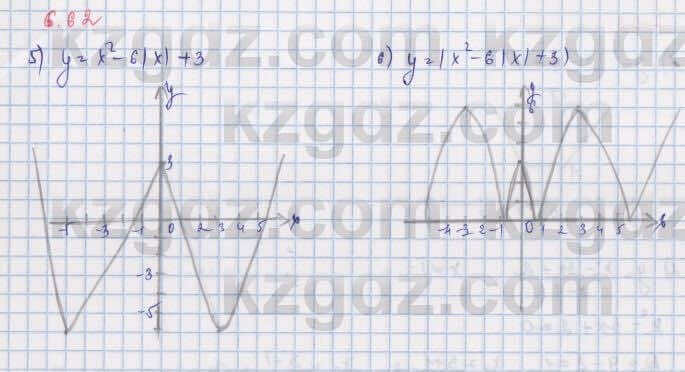 6.62
5) y = x² - 6|x| + 3
6) y = |x² - 6|x| + 3|
y
3
-5 -3 -1 0 2 3 4 5 x
-3
-5
y
6
-4 -3 -2 -1 0 1 2 3 4 5 6
kzgdz.com
kzgdz.com
kzgdz.com
kzgdz.com